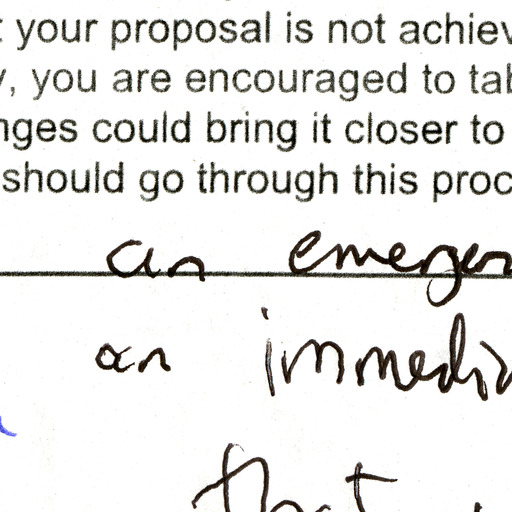 : your proposal is not achiev
y, you are encouraged to tab
nges could bring it closer to
should go through this proc
an emergen
an immedia
that